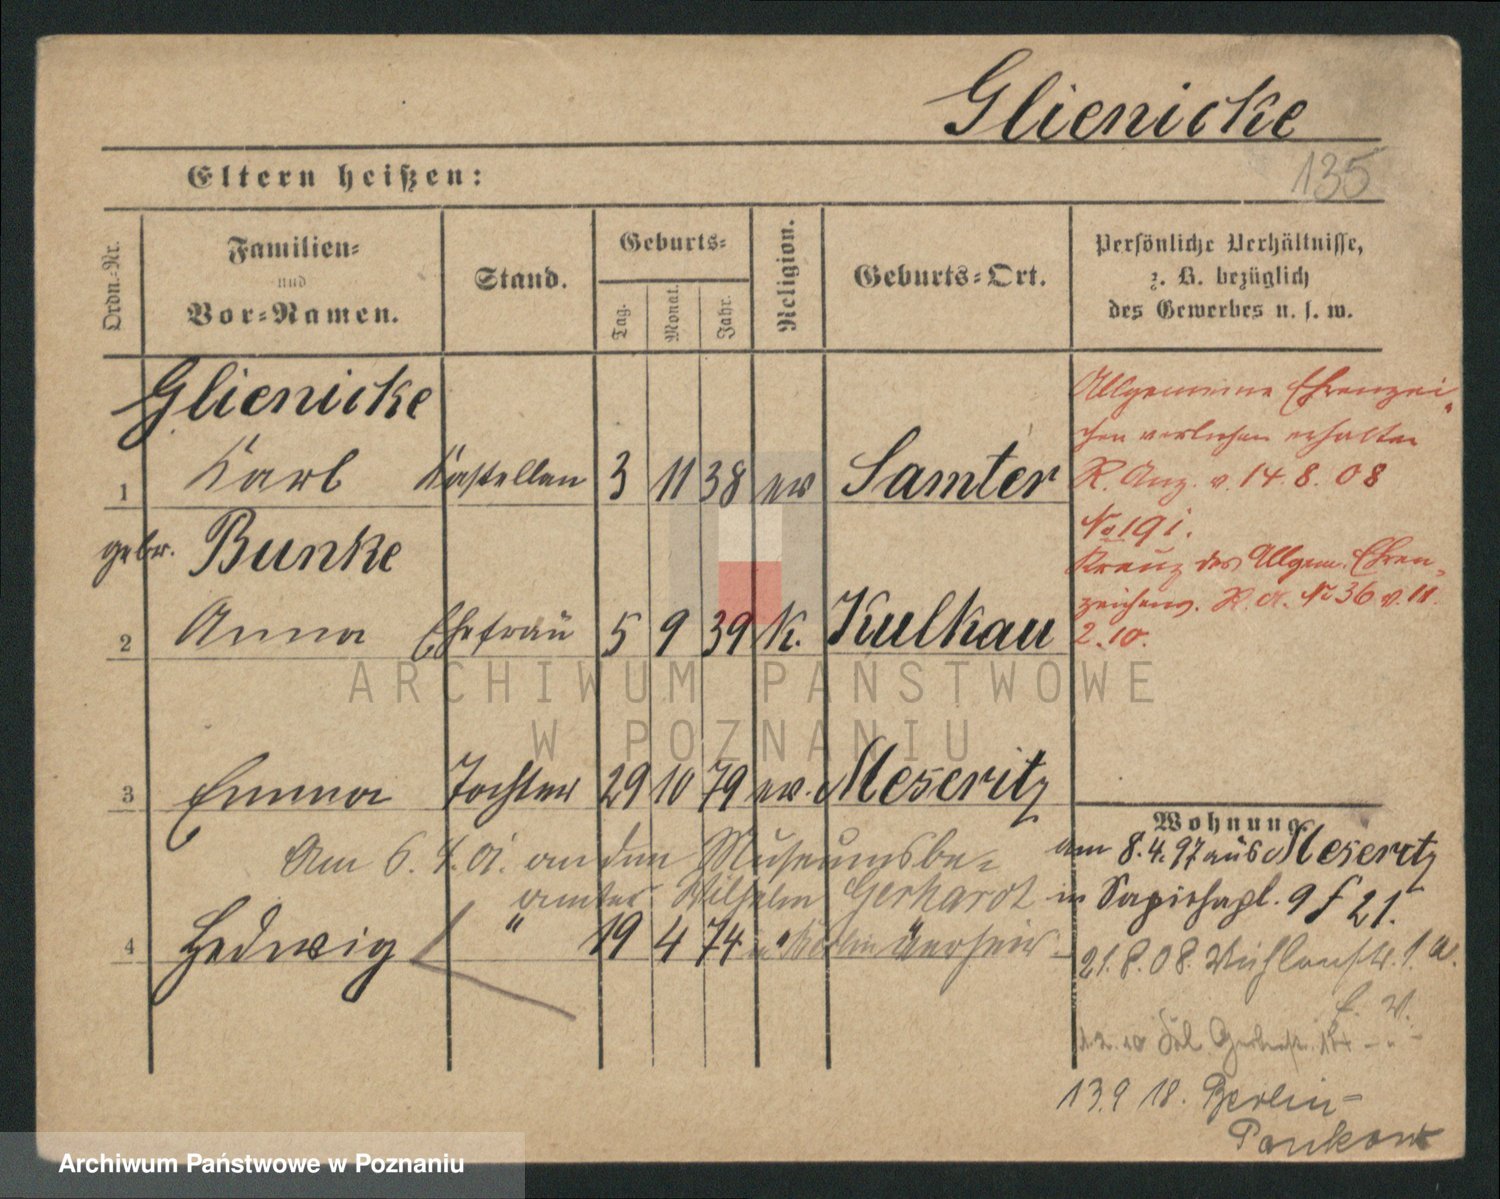 Glienicke
135
Eltern heißen:
Ordn.-Nr.
Familien-
und
Vor-Namen.
Stand.
Geburts-
Tag.
Monat.
Jahr.
Religion.
Geburts-Ort.
Persönliche Verhältnisse,
z. B. bezüglich
des Gewerbes u. s. w.
Glienicke
1 Karl Kastellan 3 11 38 ev Samter
gebr. Bunke
2 Anna Ehefrau 5 9 39 k. Kulkau
3 Emma Tochter 29 10 79 ev. Meseritz
Am 6. 4. 01. an den Museumsbe-
amten Wilhelm Gerhardt
4 Hedwig " 19 4 74 " Berlin "
Allgemeine Ehrenzei-
chen verliehen erhalten
R. Anz. v. 14. 8. 08
No 191.
Kreuz des Allgem. Ehren-
zeichens. R. A. No 36 v. 11.
2. 10.
Wohnung
am 8.4.97 aus Meseritz
in Sapiehapl. 9 f 21.
21.8.08. Mühlenstr. 1 a.
13.9 18. Berlin-
Pankow
ARCHIWUM PAŃSTWOWE
W POZNANIU
Archiwum Państwowe w Poznaniu